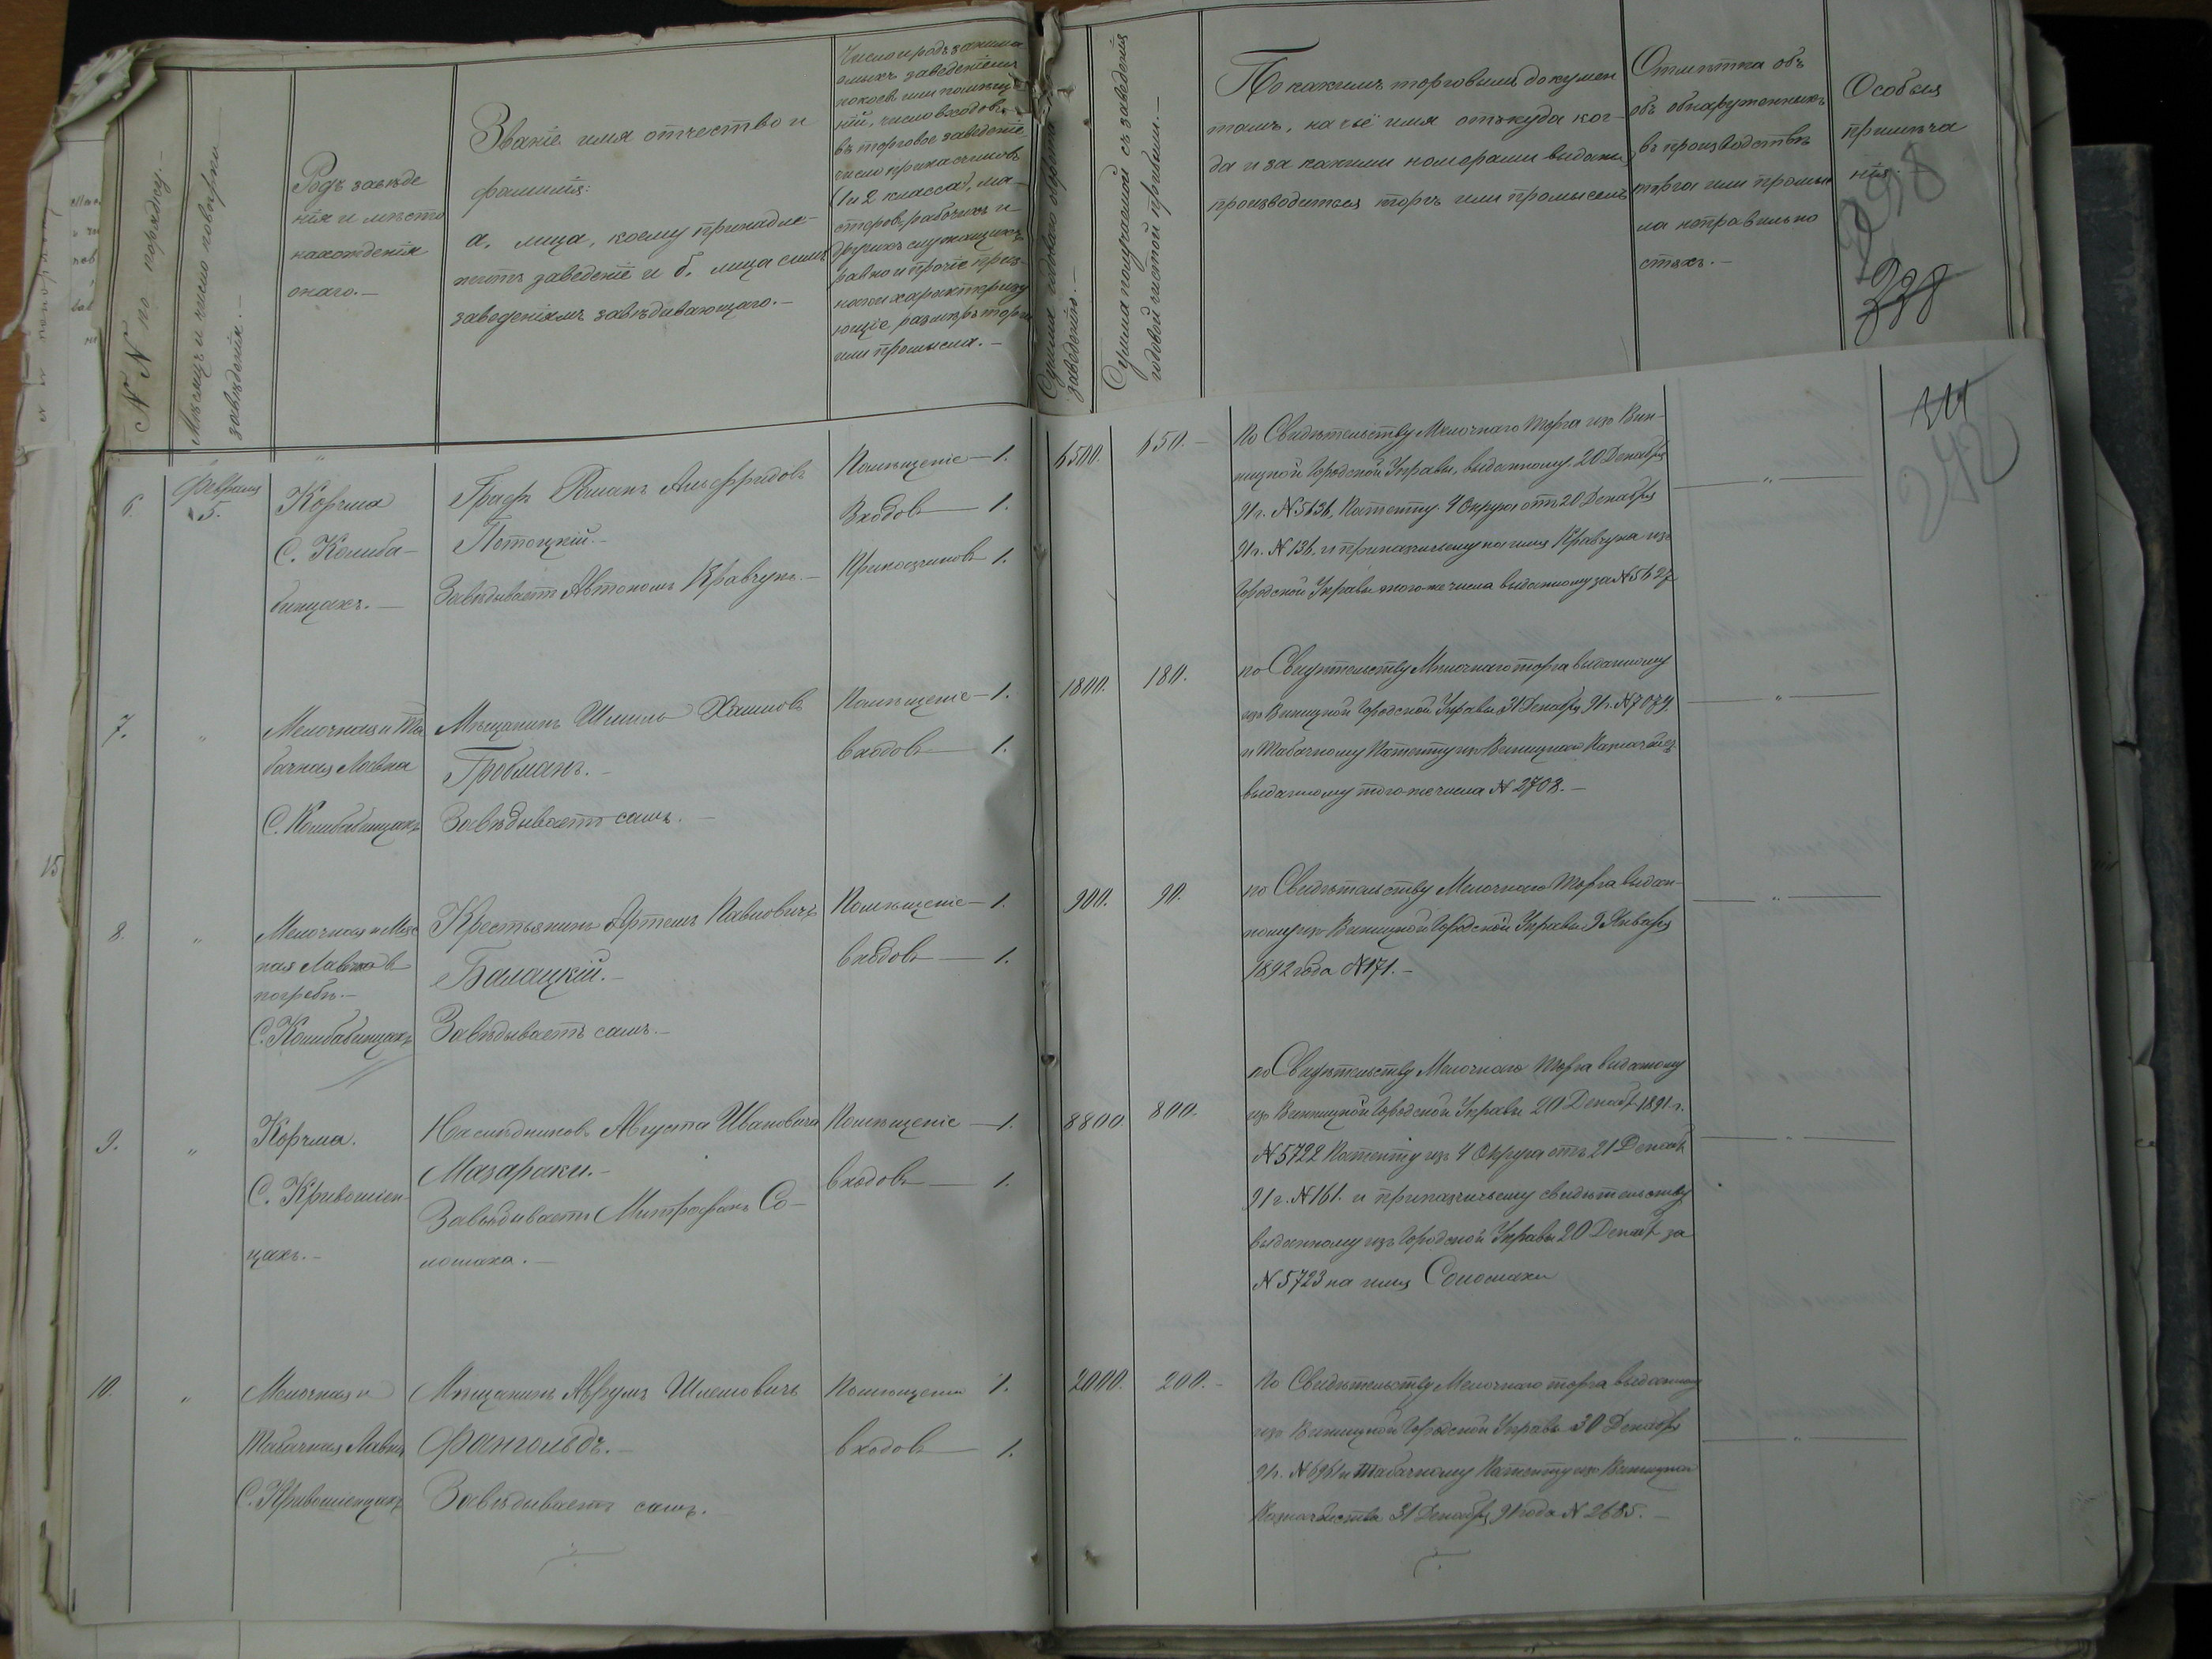 N N по порядку.—
Мѣсяцъ и число поверки
завѣденія.
Родъ завѣде
нія и мѣсто
нахожденія
онаго.—
Званіе имя отчество и
фамилія:
а, лица, коему принадле-
житъ заведеніе и б, лица симъ
заведеніямъ завѣдывающаго.—
Число и родъ занима
емыхъ заведеніемъ
покоевъ или помѣще
ній, число входовъ
въ торговое заведеніе
число прикащиковъ
(1 и 2 класса), ма-
стеровъ, рабочихъ и
другихъ служащихъ
равно и прочіе приз-
наки характеризу
ющіе размѣръ торга
или промысла.—
Сумма годоваго оборота
заведенію.—
Сумма получаемой съ заведенія
годовой чистой прибыли.—
По какимъ торговымъ докумен
тамъ, на чьё имя откуда ког-
да и за какими номерами выданы
производится торгъ или промыселъ
Отмѣтка объ
обнаруженныхъ
въ производствѣ
торга или промыс
ла неправильно
стяхъ.—
Особыя
примѣча
нія.
298
338
311
242
6. Февраля
5.
Корчма
С. Колыба-
бинцахъ.—
Графъ Романъ Альфридовъ
Потоцкій.—
Завѣдываетъ Автономъ Кравчукъ.—
Помѣщеніе—1.
Входовъ—1.
Прикащиковъ 1.
6500. 650.—
По Свидѣтельству Мелочнаго торга изъ Вин-
ницкой Городской Управы, выданному 20 Декабря
91 г. N 5636, Патенту 4 Округа отъ 20 Декабря
91 г. N 136. и приказчичьему на имя Кравчука изъ
Городской Управы того-же числа выданному за N 5627
— „ —
7. „
Мелочная и Та
бачная Лавка
С. Колыбабинцахъ
Мѣщанинъ Шмиль Хаимовъ
Гробманъ.—
Завѣдываетъ самъ.—
Помѣщеніе—1.
входовъ—1.
1800. 180.
по Свидѣтельству Мелочнаго торга выданному
изъ Виницкой Городской Управы 31 Декабря 91 г. N 7079,
и Табачному Патенту изъ Виницкаго Казначейс.
выданному того-же числа N 2708.—
— „ —
8. „
Мелочная и Мяс
ная Лавка в
погребѣ.—
С. Колыбабинцахъ
Крестьянинъ Артемъ Павловичъ
Балацкій.—
Завѣдываетъ самъ.—
Помѣщеніе—1.
входовъ—1.
900. 90.
по Свидѣтельству Мелочнаго Торга выдан-
ному изъ Виницкой Городской Управы 9 Января
1892 года N 171.—
— „ —
9. „
Корчма.
С. Кривошіен-
цахъ.—
Наслѣдниковъ Августа Ивановича
Мазараки.—
Завѣдываетъ Митрофанъ Со-
ломаха.—
Помѣщеніе—1.
входовъ—1.
8800. 800.
по Свидѣтельству Мелочнаго Торга выданному
изъ Винницкой Городской Управы 20 Декаб. 1891 г.
N 5722 Патенту изъ 4 Округа отъ 21 Декаб
91 г. N 161. и приказчичьему свидѣтельству
выданному изъ Городской Управы 20 Декаб за
N 5723 на имя Соломахи
— „ —
10. „
Мелочная и
Табачная Лавка
С. Кривошіенцахъ
Мѣщанинъ Аврумъ Шлемовичъ
Фангольдъ.—
Завѣдываетъ самъ.
Помѣщеніе 1.
входовъ—1.
2000. 200.—
По Свидѣтельству Мелочнаго торга выданному
изъ Виницкой Городской Управы 30 Декабря
91 г. N 6961 и Табачному Патенту изъ Виницкаго
Казначейства 31 Декабря 91 года N 2685.—
— „ —
15